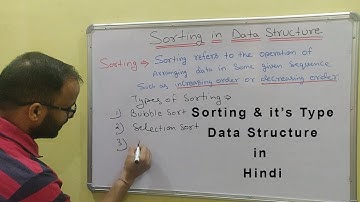 Sorting in Data Structure
Sorting → Sorting refers to the operation of
Arranging data in some given sequence
Such as increasing order or decreasing order.
Types of Sorting →
1) Bubble Sort
2) Selection Sort
3)
Sorting & it's Type
Data Structure
in
Hindi